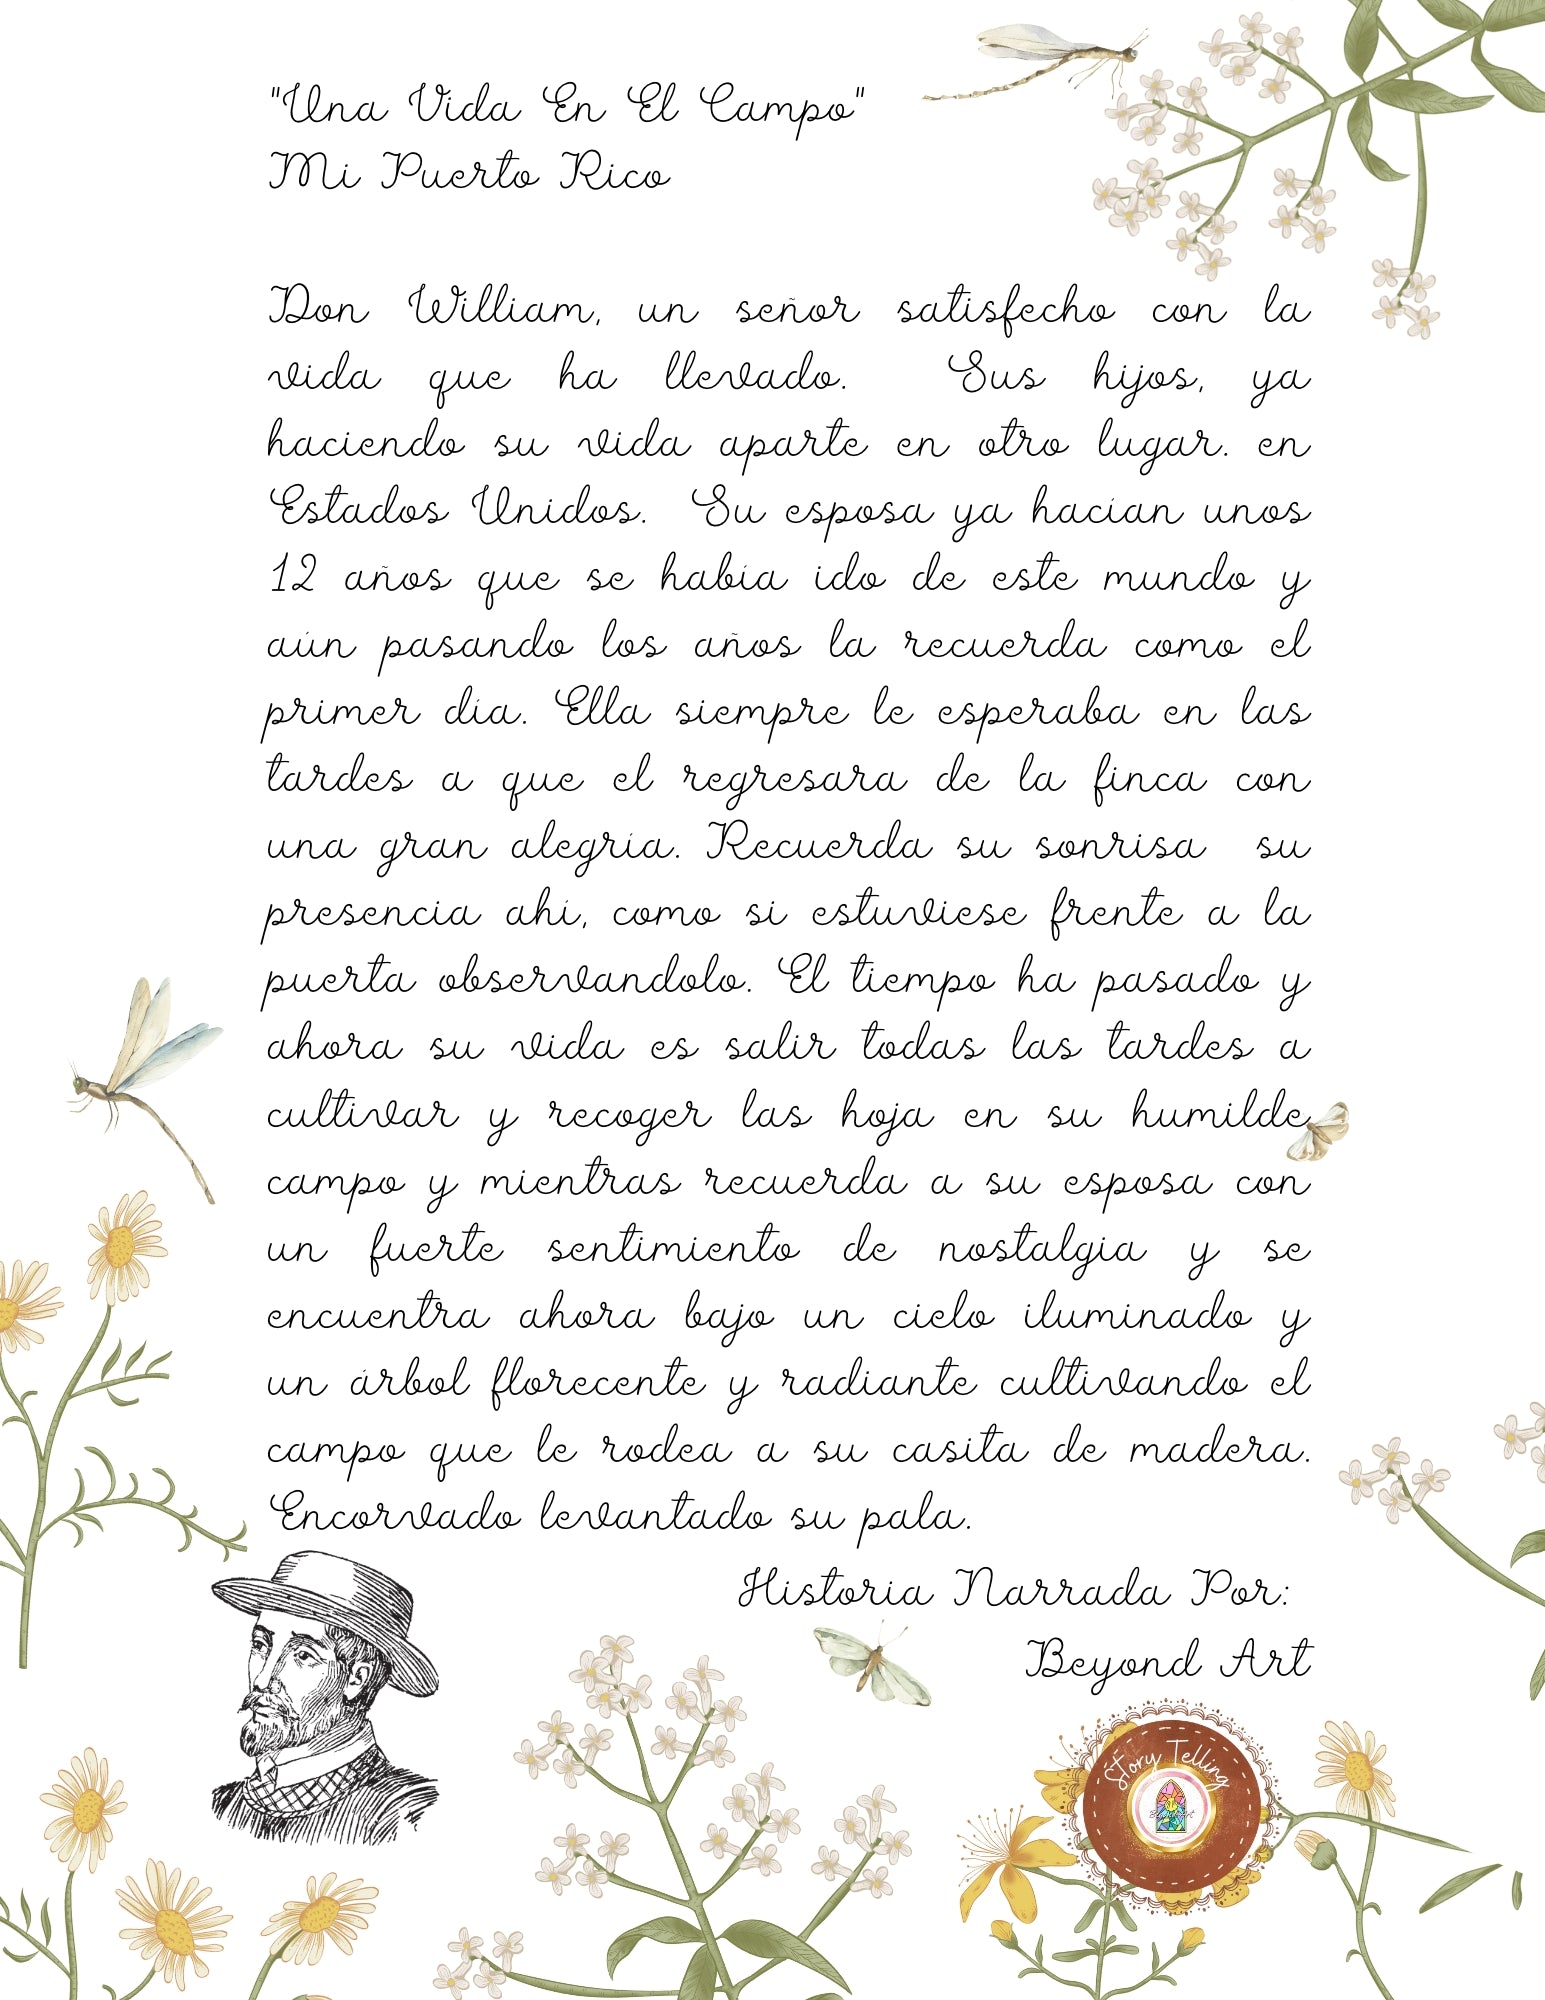 "Una Vida En El Campo"
Mi Puerto Rico
Don William, un señor satisfecho con la
vida que ha llevado. Sus hijos, ya
haciendo su vida aparte en otro lugar. en
Estados Unidos. Su esposa ya hacían unos
12 años que se había ido de este mundo y
aún pasando los años la recuerda como el
primer día. Ella siempre le esperaba en las
tardes a que el regresara de la finca con
una gran alegría. Recuerda su sonrisa su
presencia ahí, como si estuviese frente a la
puerta observandolo. El tiempo ha pasado y
ahora su vida es salir todas las tardes a
cultivar y recoger las hoja en su humilde
campo y mientras recuerda a su esposa con
un fuerte sentimiento de nostalgia y se
encuentra ahora bajo un cielo iluminado y
un árbol florecente y radiante cultivando el
campo que le rodea a su casita de madera.
Encorvado levantado su pala.
Historia Narrada Por:
Beyond Art
Story Telling